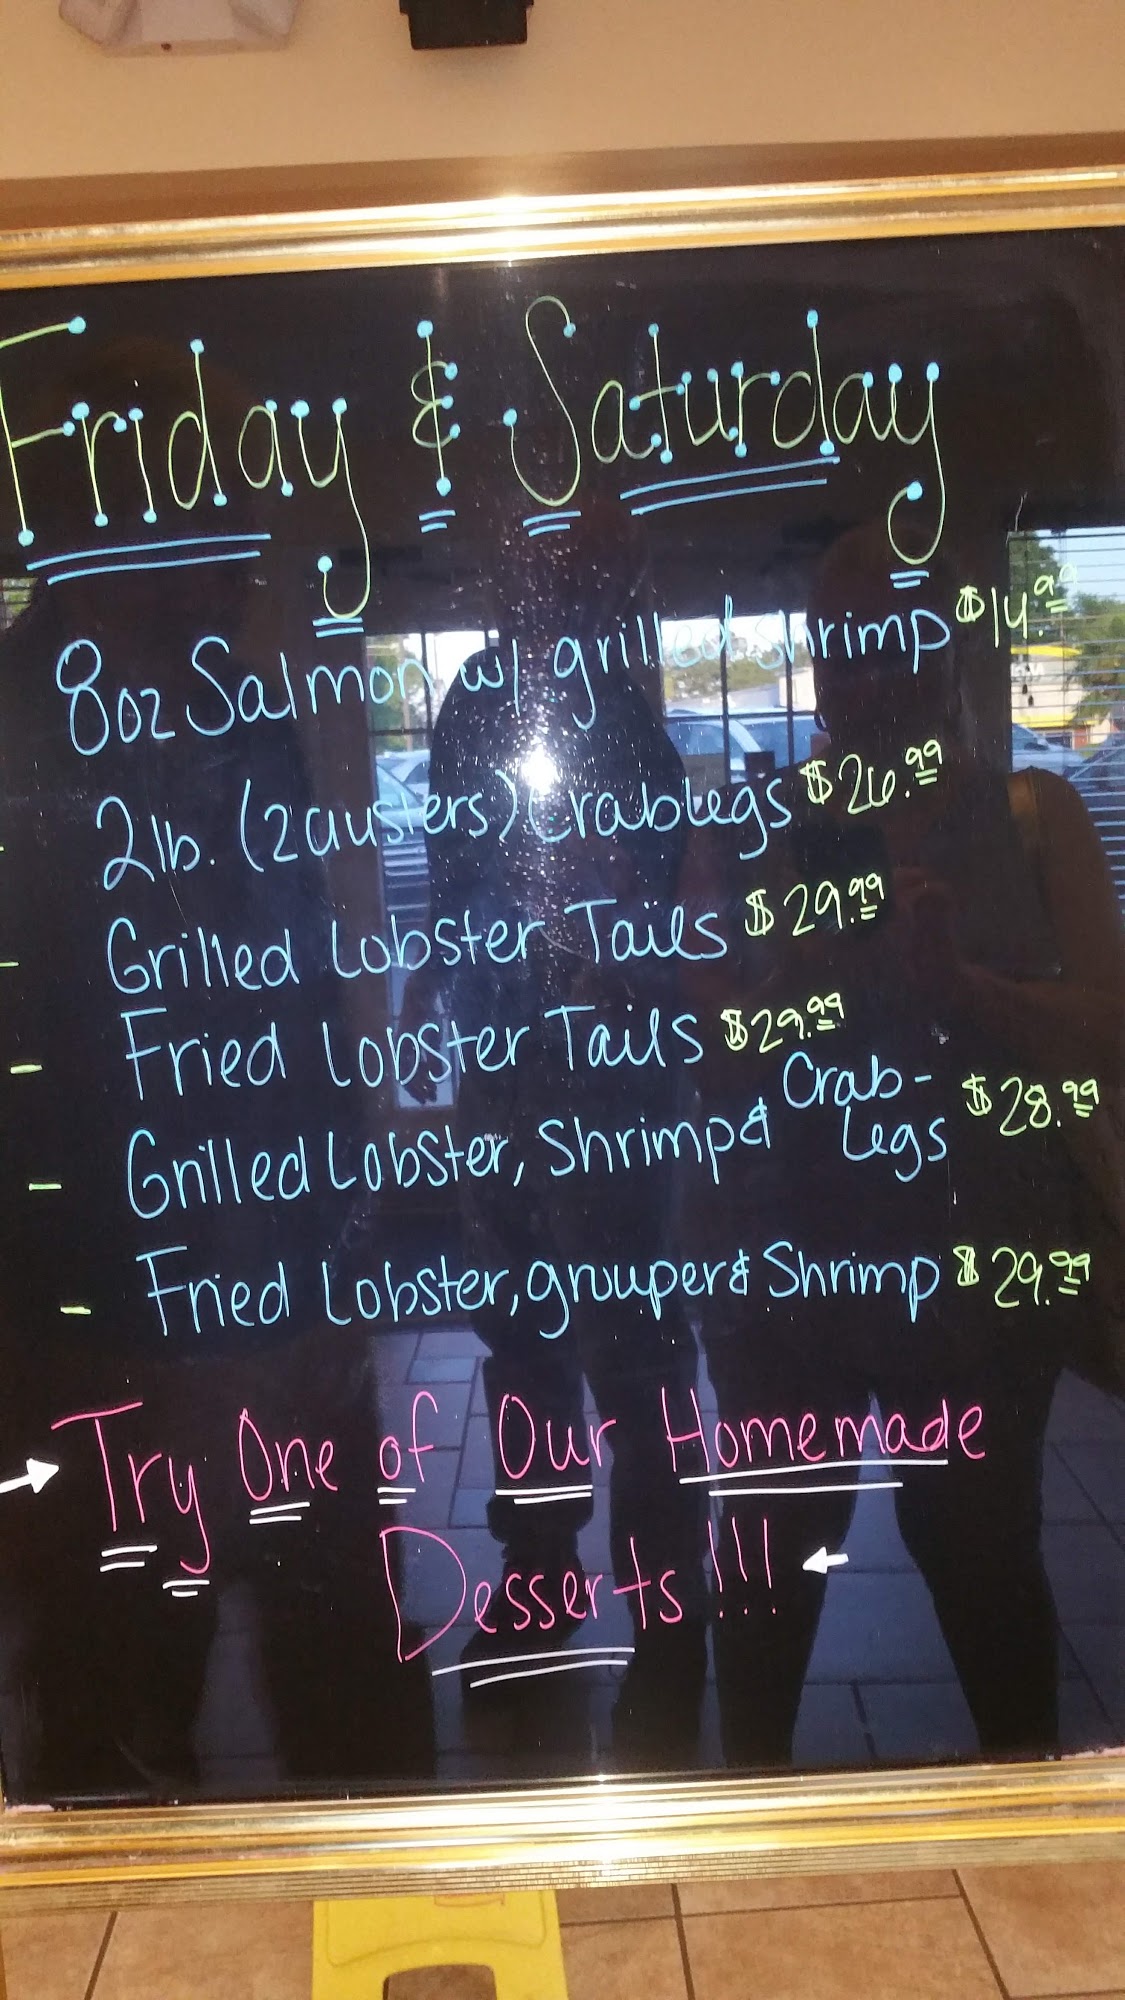 Friday & Saturday
8oz Salmon w/ grilled shrimp $14.99
2lb. (2 clusters) Crab Legs $26.99
- Grilled Lobster Tails $29.99
- Fried Lobster Tails $29.99
- Grilled Lobster, Shrimp & Crab-
Legs $28.99
- Fried Lobster, grouper & Shrimp $29.99
Try One of Our Homemade
Desserts!!!